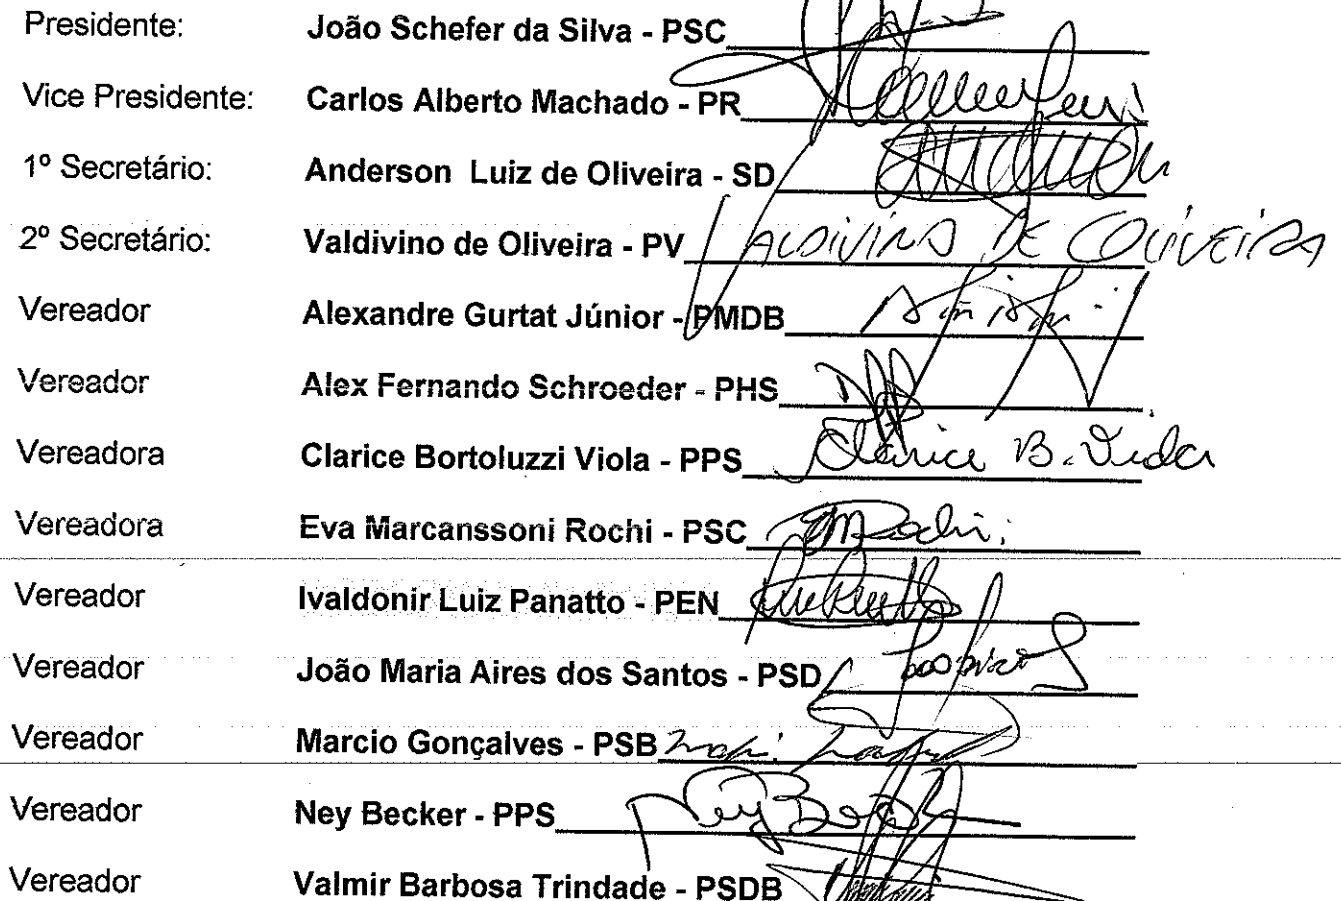 Presidente: João Schefer da Silva - PSC
Vice Presidente: Carlos Alberto Machado - PR
1º Secretário: Anderson Luiz de Oliveira - SD
2º Secretário: Valdivino de Oliveira - PV VALDIVINO DE OLIVEIRA
Vereador Alexandre Gurtat Júnior - PMDB
Vereador Alex Fernando Schroeder - PHS
Vereadora Clarice Bortoluzzi Viola - PPS Clarice B. Viola
Vereadora Eva Marcanssoni Rochi - PSC EMRochi
Vereador Ivaldonir Luiz Panatto - PEN
Vereador João Maria Aires dos Santos - PSD
Vereador Marcio Gonçalves - PSB
Vereador Ney Becker - PPS Ney Becker
Vereador Valmir Barbosa Trindade - PSDB